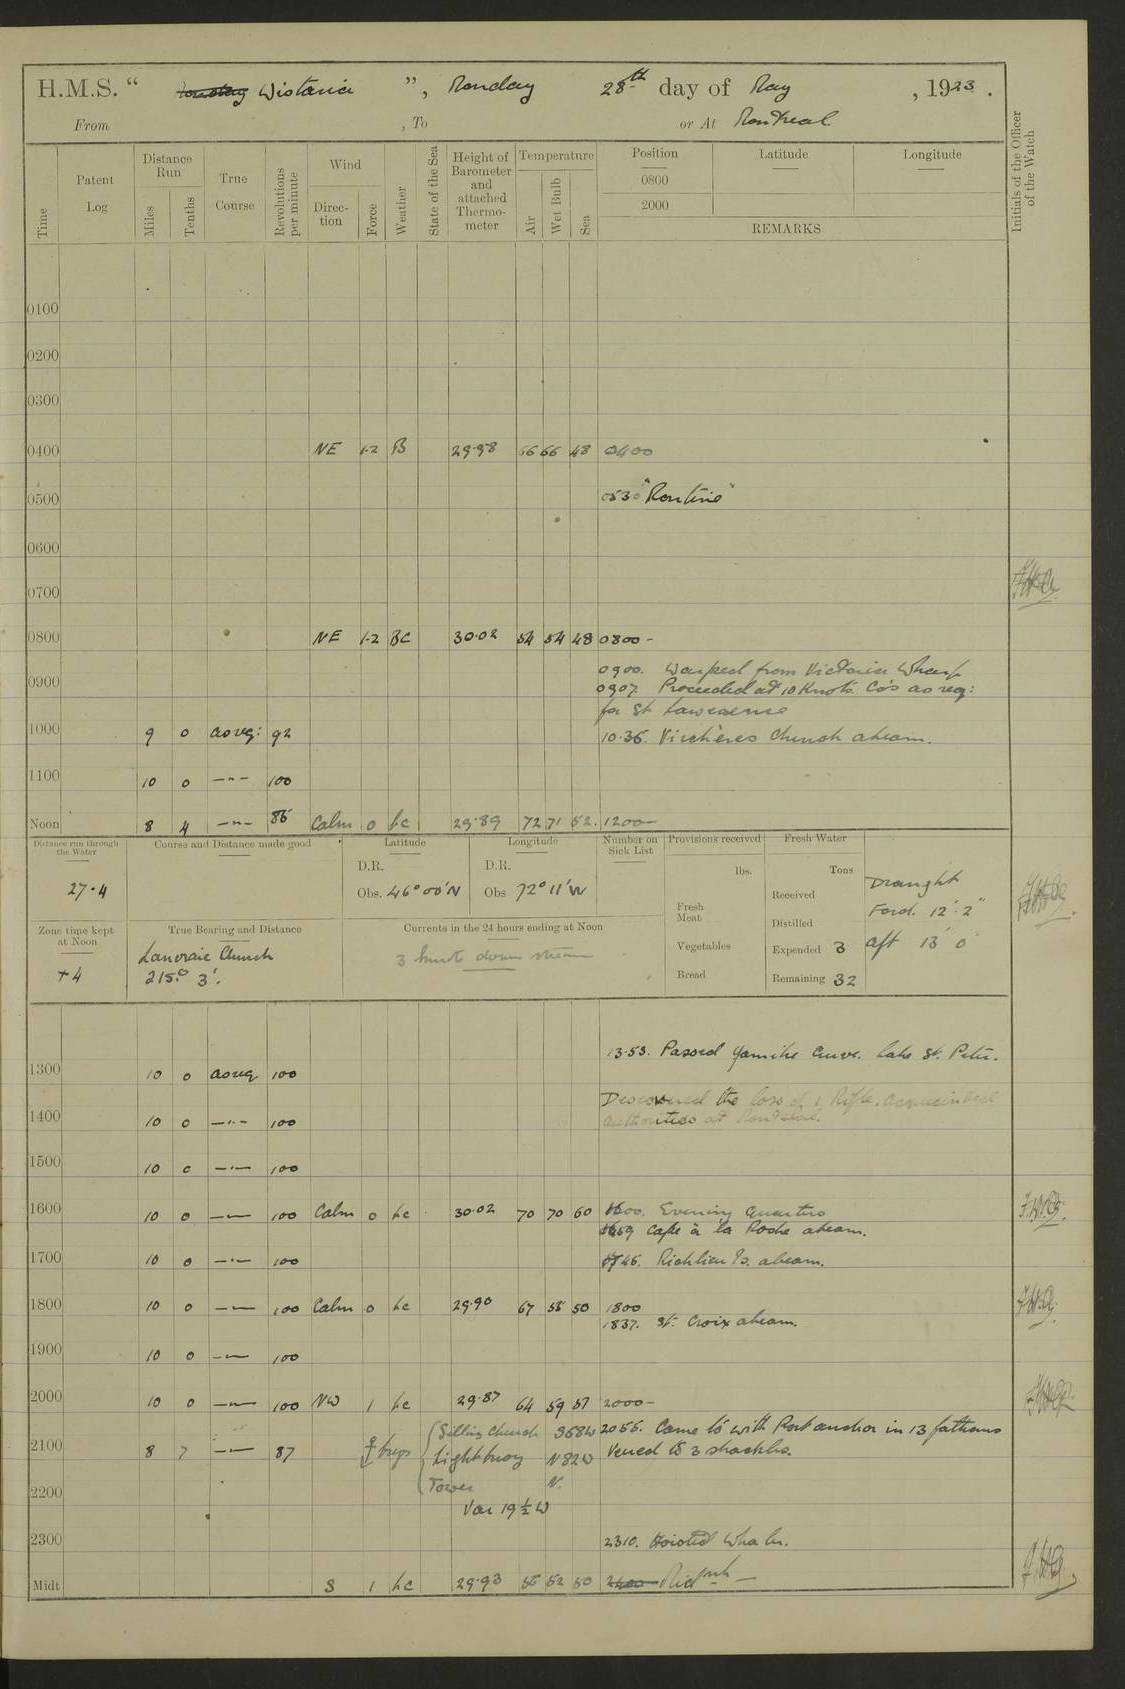 H.M.S. “ Wistaria ”, Monday 28th day of May, 1923.
From , To or At Montreal.
Time
Patent Log
Distance Run
Miles
Tenths
True Course
Revolutions per minute
Wind
Direction
Force
Weather
State of the Sea
Height of Barometer and attached Thermometer
Temperature
Air
Wet Bulb
Sea
Position
0800
2000
Latitude
Longitude
REMARKS
Initials of the Officer of the Watch
0100
0200
0300
0400 NE 1-2 B 29.98 56 56 48 0400
0500 0530 "Routine"
0600
0700
0800 NE 1-2 BC 30.02 54 54 48 0800 -
0900 0900. Warped from Victoria Wharf
0907. Proceeded at 10 Knots. Co's as req:
for St Lawrence
1000 9 0 as req: 92 10.36. Verchères Church abeam.
1100 10 0 —"— 100
Noon 8 4 —"— 85 Calm 0 bc 29.89 72 71 52. 1200 —
Distance run through the Water
27.4
Course and Distance made good
Latitude
D.R.
Obs. 46° 00' N
Longitude
D.R.
Obs 72° 11' W
Number on Sick List
Provisions received
lbs.
Fresh Meat
Vegetables
Bread
Fresh Water
Tons
Received
Distilled
Expended 3
Remaining 32
Draught
Ford. 12'. 2"
aft 13' 0"
Zone time kept at Noon
+ 4
True Bearing and Distance
Lanoraie Church
215° 3'.
Currents in the 24 hours ending at Noon
3 knots down stream
13.53. Passed Yamachiche Curve. Lake St. Peter.
1300 10 0 as req 100
Discovered the loss of 1 Rifle. acquainted
1400 10 0 —"— 100 authorities at Montreal.
1500 10 0 —"— 100
1600 10 0 —"— 100 Calm 0 bc 30.02 70 70 60 1600. Evening Quarters
1659 Cape à la Roche abeam.
1700 10 0 —"— 100 1746. Richlieu Is. abeam.
1800 10 0 —"— 100 Calm 0 bc 29.90 67 58 50 1800
1837. St. Croix abeam.
1900 10 0 —"— 100
2000 10 0 —"— 100 NW 1 bc 29.87 64 59 51 2000 —
Church S68W 2055. Came to with Port anchor in 13 fathoms
2100 8 7 —"— 87 Lightbuoy N82W Veered to 3 shackles.
Tower N.
2200
Var 19½ W
2300 2310. Hoisted Whaler.
Midt S 1 bc 29.93 56 52 50 Midnt —